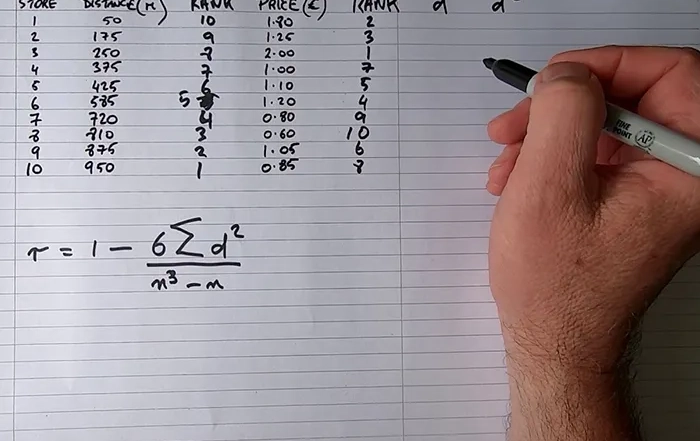 STORE DISTANCE(M) RANK PRICE(£) RANK d d
1 50 10 1.80 2
2 175 9 1.25 3
3 250 8 2.00 1
4 375 7 1.00 7
5 425 6 1.10 5
6 585 5 1.20 4
7 720 4 0.80 9
8 810 3 0.60 10
9 875 2 1.05 6
10 950 1 0.85 8
r = 1 - 6∑d²
n³ - n
FINE POINT AP